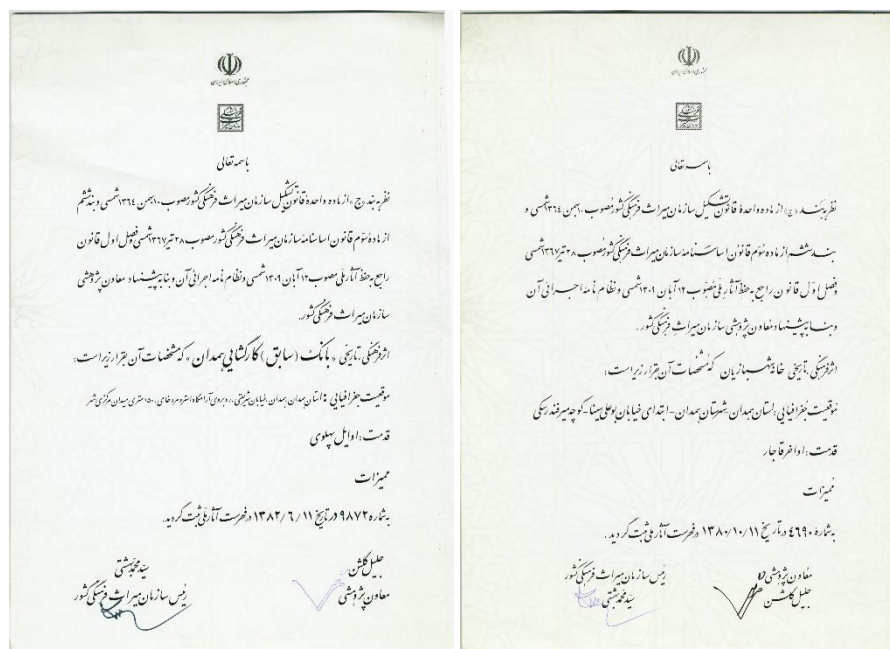 جمهوری اسلامی ایران
باسمه تعالی
نظر به بند «ج» از ماده واحدهٔ قانون تشکیل سازمان میراث فرهنگی کشور مصوب ۱۰ بهمن ۱۳۶۴ شمسی و بند ششم
از مادهٔ سوم قانون اساسنامه سازمان میراث فرهنگی کشور مصوب ۲۸ تیر ۱۳۶۷ شمسی و فصل اول قانون
راجع به حفظ آثار ملی مصوب ۱۲ آبان ۱۳۰۹ شمسی و نظام نامه اجرائی آن و بنا به پیشنهاد معاون پژوهشی
سازمان میراث فرهنگی کشور.
اثر فرهنگی ـ تاریخی « بانک (سابق) کارگشایی همدان » که مشخصات آن بقرار زیر است:
موقعیت جغرافیایی: استان همدان، همدان، خیابان شریعتی، روبروی آرامگاه استر و مردخای، ۱۵۰ متری میدان مرکزی شهر
قدمت: اوایل پهلوی
ممیزات
بشماره ۹۸۷۲ در تاریخ ۱۳۸۲/۶/۱۱ در فهرست آثار ملی ثبت گردید.
جلیل گلشن
معاون پژوهشی
سید محمد بهشتی
رئیس سازمان میراث فرهنگی کشور
جمهوری اسلامی ایران
باسمه تعالی
نظر به بند «ج» از ماده واحدهٔ قانون تشکیل سازمان میراث فرهنگی کشور مصوب ۱۰ بهمن ۱۳۶۴ شمسی و
بند ششم از ماده سوم قانون اساسنامه سازمان میراث فرهنگی کشور مصوب ۲۸ تیر ۱۳۶۷ شمسی
و فصل اول قانون راجع به حفظ آثار ملی مصوب ۱۲ آبان ۱۳۰۹ شمسی و نظام نامه اجرائی آن
و بنا به پیشنهاد معاون پژوهشی سازمان میراث فرهنگی کشور.
اثر فرهنگی ـ تاریخی خانه شهبازیان که مشخصات آن بقرار زیر است:
موقعیت جغرافیایی: استان همدان ـ شهرستان همدان - ابتدای خیابان بوعلی سینا - کوچه میرفندرسکی
قدمت: اواخر قاجار
ممیزات
بشماره ۴۶۹۰ در تاریخ ۱۳۸۰/۱۰/۱۱ در فهرست آثار ملی ثبت گردید.
معاون پژوهشی
جلیل گلشن
رئیس سازمان میراث فرهنگی کشور
سید محمد بهشتی